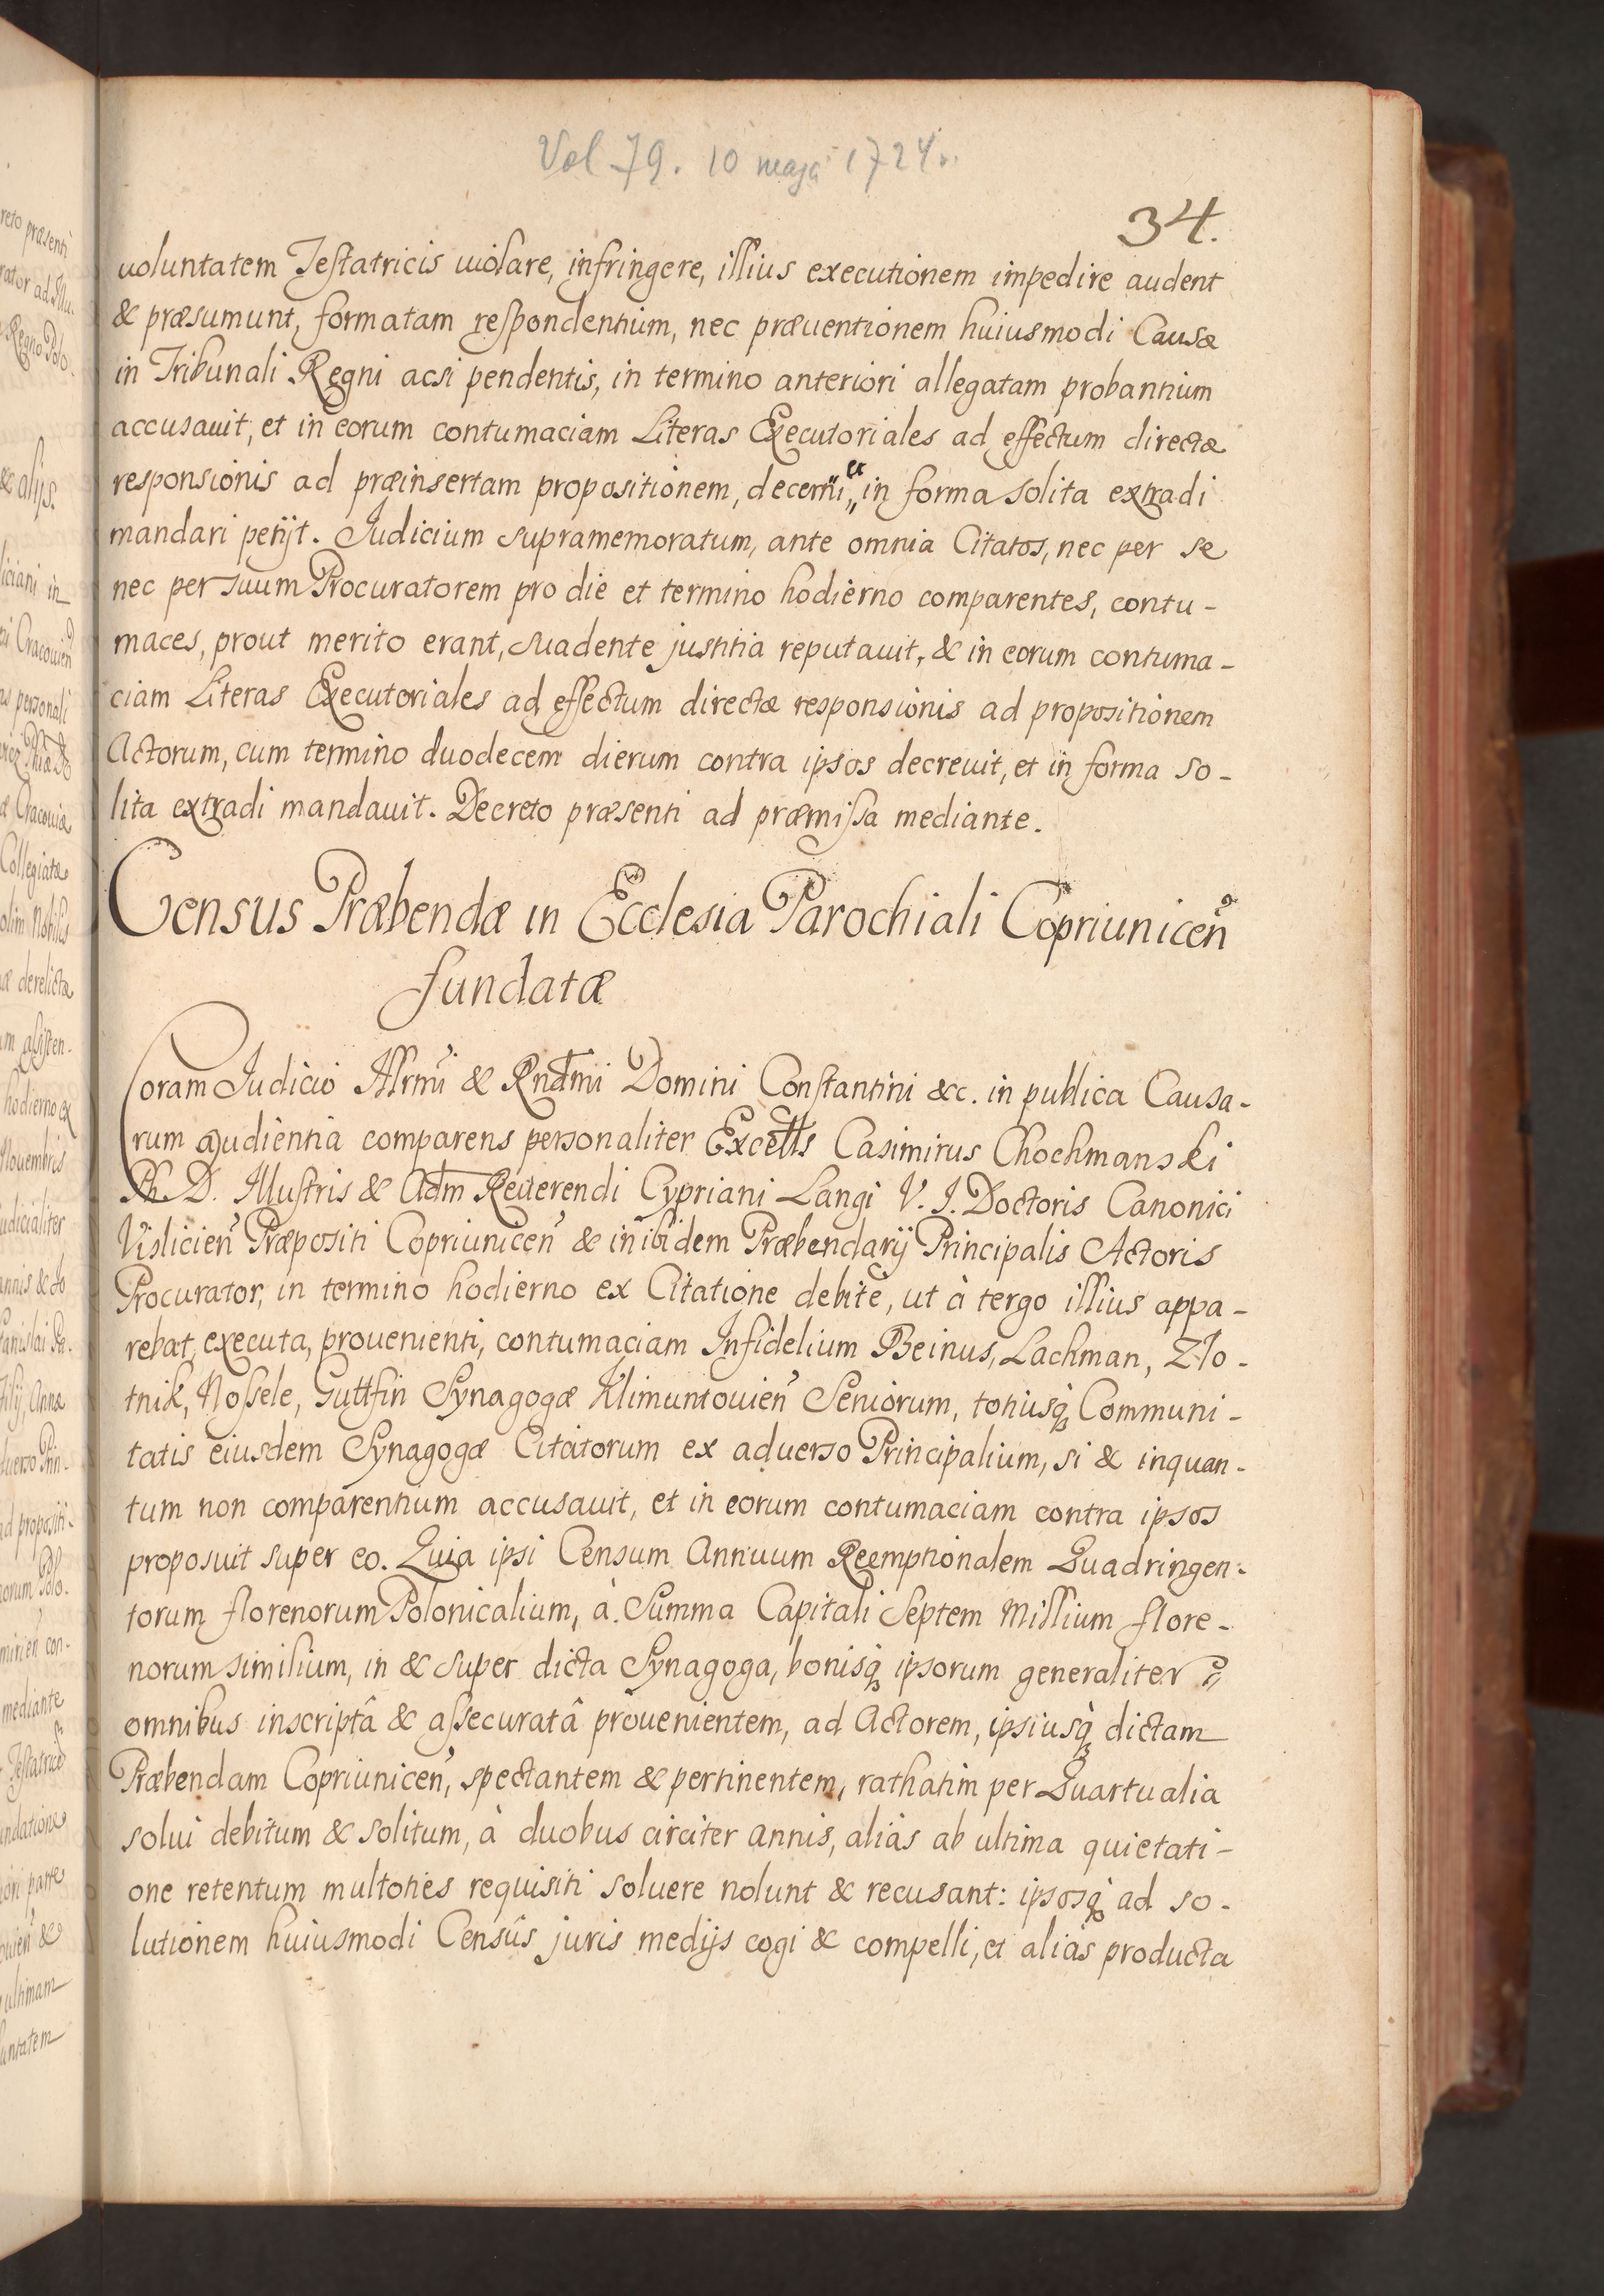 Vol 79. 10 maja 1724.
34.
uoluntatem Testatricis uiolare, infringere, illius executionem impedire audent
& præsumunt, formatam respondentium, nec præuentionem huiusmodi Causæ
in Tribunali Regni acsi pendentis, in termino anteriori allegatam probantium
accusauit, et in eorum contumaciam Literas Executoriales ad effectum directæ
responsionis ad præinsertam propositionem, decerni, et in forma solita extradi
mandari petijt. Judicium supramemoratum, ante omnia Citatos, nec per se
nec per suum Procuratorem pro die et termino hodierno comparentes, contu-
maces, prout merito erant, suadente justitia reputauit, & in eorum contuma-
ciam Literas Executoriales ad effectum directæ responsionis ad propositionem
Actorum, cum termino duodecem dierum contra ipsos decreuit, et in forma so-
lita extradi mandauit. Decreto præsenti ad præmissa mediante.
Census Præbendæ in Ecclesia Parochiali Copriunicen̄
fundatæ
Coram Judicio Illrmi & Rndmi Domini Constantini &c. in publica Causa-
rum audientia comparens personaliter Excells Casimirus Chochmanski
Ph. D. Illustris & Adm Reuerendi Cypriani Langi V. J. Doctoris Canonici
Vislicien̄ Præpositi Copriunicen̄ & inibidem Præbendarij Principalis Actoris
Procurator, in termino hodierno ex Citatione debitè, ut à tergo illius appa-
rebat, executa, prouenienti, contumaciam Infidelium Beinus, Lachman, Zło-
tnik, Nossele, Guttfin Synagogæ Klimuntouien̄ Seniorum, totiusq̀ Communi-
tatis eiusdem Synagogæ Citatorum ex aduerso Principalium, si & inquan-
tum non comparentium accusauit, et in eorum contumaciam contra ipsos
proposuit super eo. Quia ipsi Censum Annuum Reemptionalem Quadringen-
torum florenorum Polonicalium, à Summa Capitali Septem Millium flore-
norum similium, in & super dicta Synagoga, bonisq̀ ipsorum generaliter
omnibus inscriptâ & assecuratâ prouenientem, ad Actorem, ipsiusq̀ dictam
Præbendam Copriunicen̄, spectantem & pertinentem, rathatim per Quartualia
solui debitum & solitum, à duobus circiter annis, alias ab ultima quietati-
one retentum multoties requisiti soluere nolunt & recusant: ipsosq̀ ad so-
lutionem huiusmodi Censûs juris medijs cogi & compelli, et alias producta